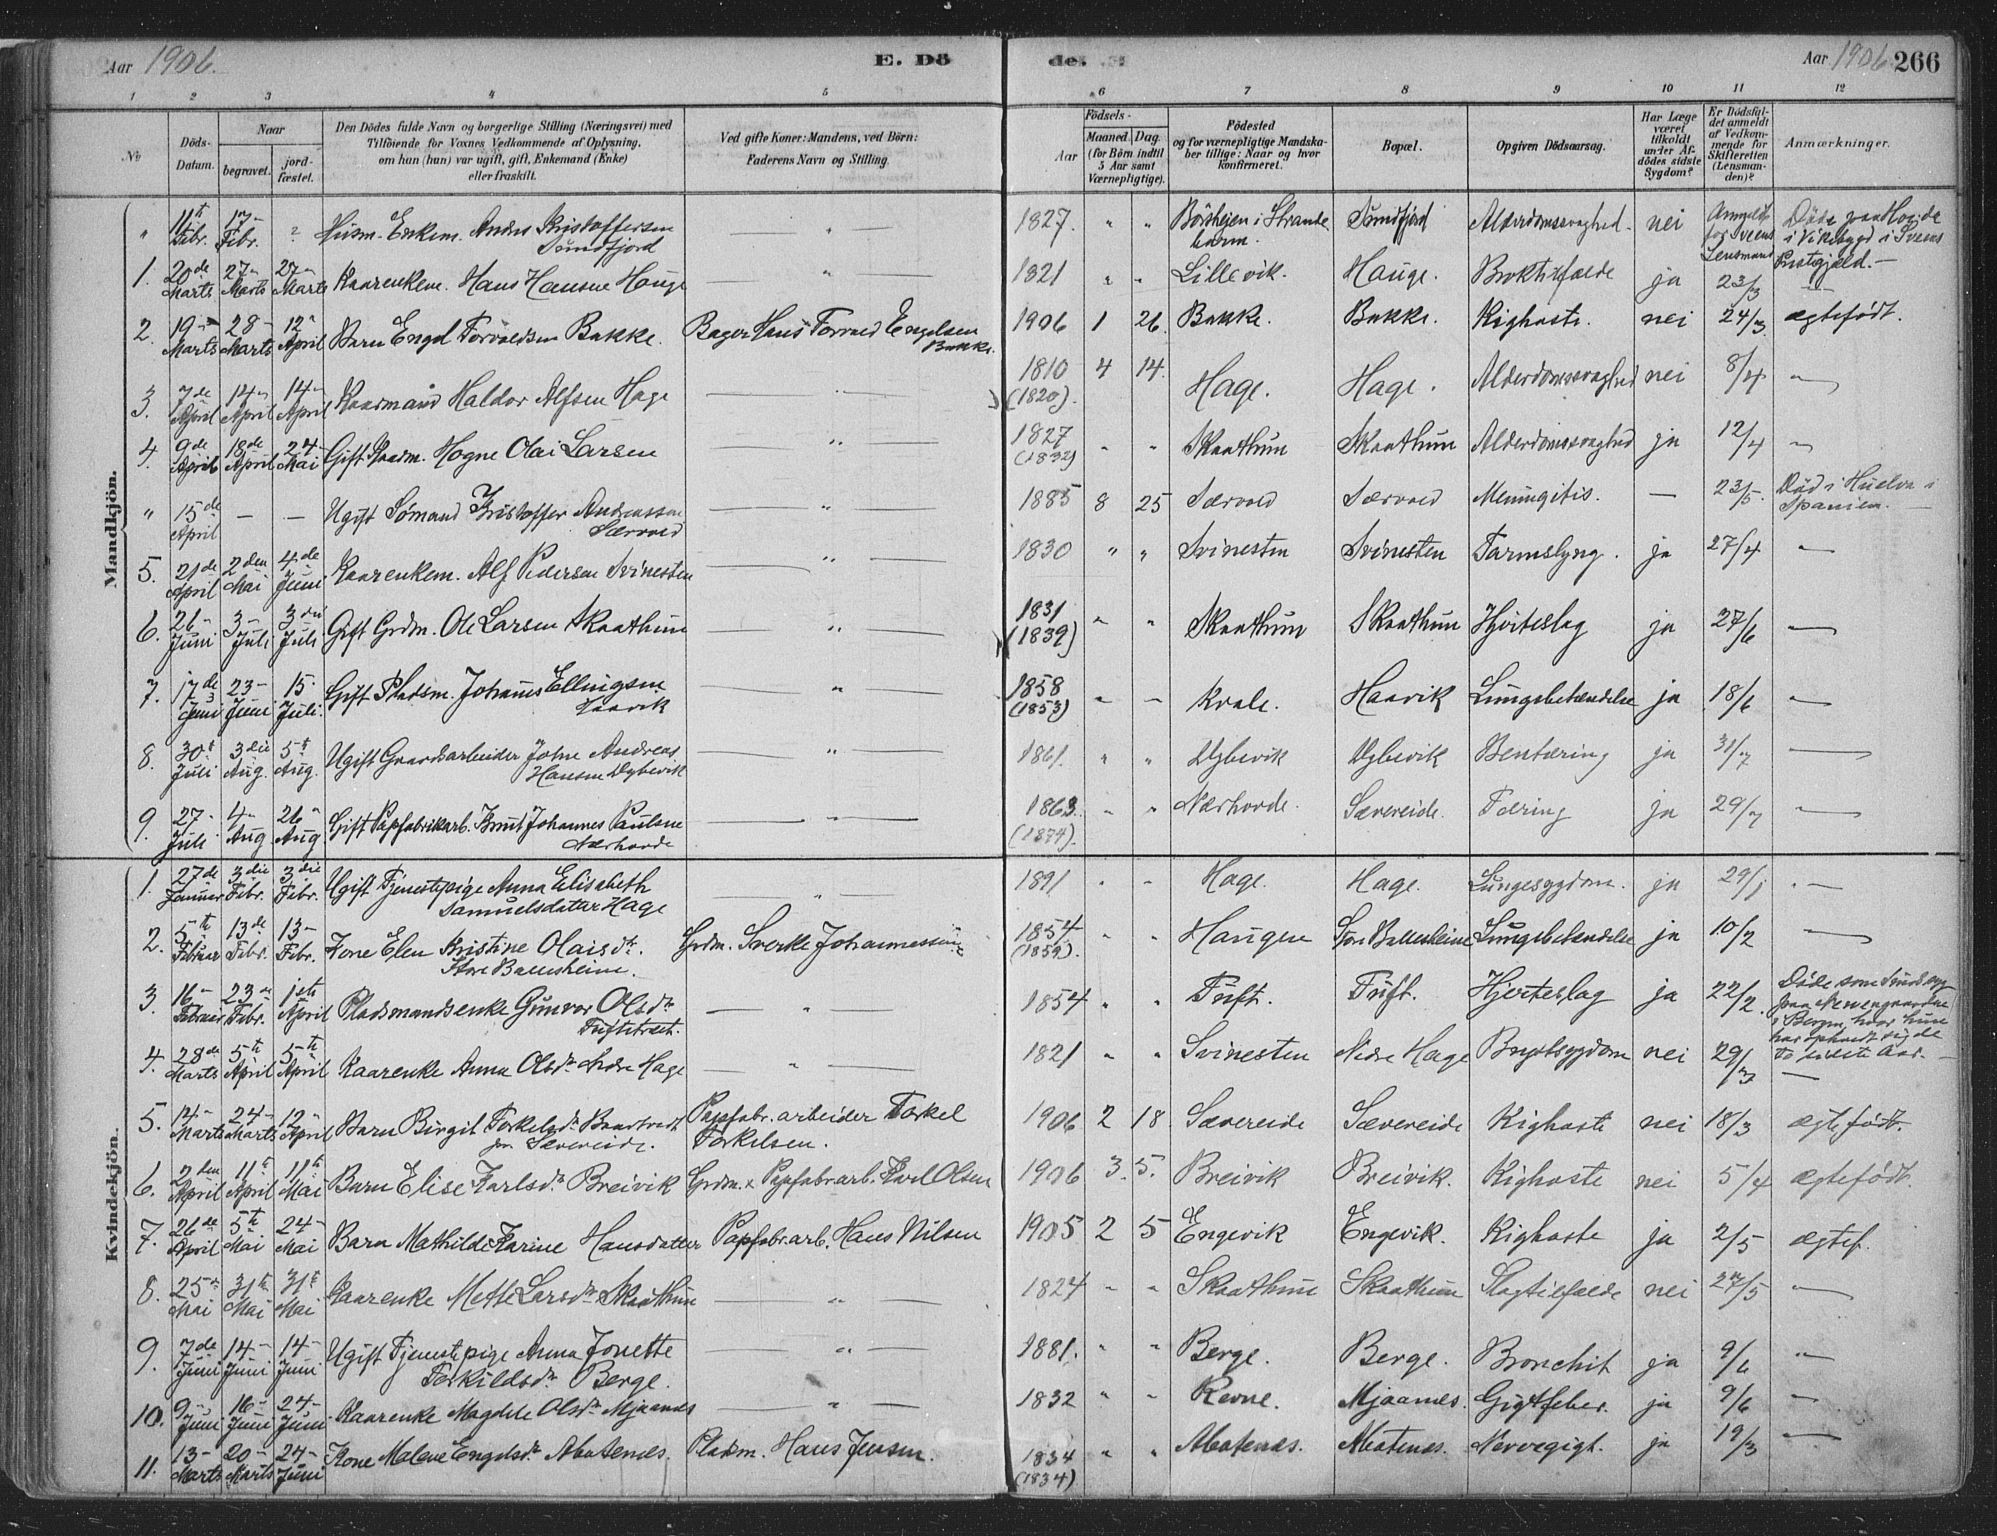 Aar 1906. E. Dö
de. Aar 1906. 266
1 2 3 4 5 6 7 8 9 10 11 12
No
Döds-Datum.
Naar
begravet.
jord-fæstet.
Den Dödes fulde Navn og borgerlige Stilling (Næringsvei) med
Tilföiende for Voxnes Vedkommende af Oplysning,
om hun (han) var ugift, gift, Enkemand (Enke)
eller fraskilt.
Ved gifte Koner: Mandens, ved Börn:
Faderens Navn og Stilling.
Födsels-
Aar
Maaned. Dag.
(for Börn indtil
5 Aar samt
Værnepligtige).
Födested
og for værnepligtige Mandska-
ber tillige: Naar og hvor
konfirmeret.
Bopæl.
Opgiven Dödsaarsag.
Har Læge
været
tilkaldt
under Af-
dödes sidste
Sygdom?
Er Dödsfal-
det anmeldt
af Vedkom-
mende for
Skifteretten
(Lensman-
den)?
Anmærkninger.
Mandkjön.
" 11te Febr. 17- Febr. Husm. Enkem. Anders Kristoffersen Sundfjord — " — 1827. " " i Strandebarm. Sundfjord Alderdomssvaghed. nei Anmeldt for Sveens Lensmand Døde paa i Vikebygd i Sveens Prestgjeld. —
1. 20de Marts 27- Marts 27- Marts Kaarenkem. Hans Hansen Hauge — " — 1821 " " Lillevik. Hauge. ja 23/3 —
2. 19- Marts 28- Marts 12- April Barn Engel Torvaldsen Bakke. Bager Hans Torvald Engelsen Bakke. 1906 1 26. Bakke. Bakke. Kighoste. nei 24/3 ægtefødt.
3. 7de April 14- April 14- April Kaarmand Haldor Alfsen Hage — " — 1810 (1820). 4 14. Hage. Hage. Alderdomssvaghed nei 8/4 "—
4. 9de April 18de April 24 Mai Gift Kaarm. Hogne Olai Larsen — " — 1827 (1832) " " Skaathun Skaathun Alderdomssvaghed ja 12/4 "
" 15de April — — Ugift Sømand Kristoffer Andreassen Særvold — " 1885 8 25 Særvold Særvold Meningitis. — 23/5. Død i Huelva i Spanien. —
5. 21de April 2den Mai 4de Juni Kaarenkem. Alf Pedersen Svinesten — " — 1830 " " Svinesten Svinesten Tarmslyng. ja 27/4 "—
6. 26- Juni 3- Juli 3die Juli Gift Grdm. Ole Larsen Skaathun — " — 1831 (1839) " " Skaathun Skaathun Hjerteslag ja 27/6 —
7. 17de Juni 23- Juni 15. Juli. Gift Pladsm. Johannes Ellingsen Haavik — " — 1858 (1853) " — Kvale. Haavik Lungebetændelse ja 18/6 "—
8. 30te Juli 3die Aug. 5te Aug. Ugift Gaardsarbeider John Andreas Hansen Dybevik — " — 1861. " " Dybevik Dybevik Bentæring ja 31/7 —
9. 27- Juli 4- Aug 26- Aug Gift Papfabrikarb. Knut Johannes Paulsen Nærhovde — " — 1863 (1874). " " Nærhovde. Sævereide. Tæring ja 29/7 "—
Kvindekjön.
1. 27de Januar 3die Febr. 3die Febr. Ugift Tjenestepige Anna Elisabeth Samuelsdatter Hage — " — 1891 " " Hage. Hage. Lungesygdom. ja 29/1 "—
2. 5te Februar 13de Febr. 13- Febr. Kone Elen Kristine Olaisdtr. Store Ballesheim. Grdm. Sverke Johannessen 1854 (1859). " " Haugen Store Ballesheim Lungebetændelse ja 10/2 —
3 16- Februar 23de Febr. 1ste April Pladsmandsenke Gunvor Olsdtr Tuftetræet. — " — 1854 " " Tuft. Tuft. Hjerteslag ja 22/2. Døde som Sindssyg paa Neuengaarden i Bergen, hvor hun har opholdt sig de 10 sidste Aar. —
4. 28de Marts 5te April 5te April Kaarenke Anna Olsdtr. Nedre Hage — " — 1821 " " Svinesten Nedre Hage Brystsygdom nei 29/3 —
5. 14- Marts 24- Marts 12- April Barn Birgit Torkelsdtr. Baartvedt paa Sævereide. Papfabr. arbeider Torkel Torkelsen. 1906 2 18 Sævereide Sævereide Kighoste nei 18/3 ægtefødt.
6. 2den April 11te April 11te Mai Barn Elise Karlsdtr Breivik Grdm. & Papfabrarb. Karl Olsen 1906 3. 5. Breivik Breivik. Kighoste nei 5/4 ægtefødt.
7. 26de April 5te Mai 24- Mai Barn Mathilde Karine Hansdatter Papfabr. arb. Hans Nilsen 1905 2 5 Engevik Engevik. Kighoste ja 2/5 ægtef.
8. 25de Mai 31te Mai 31te Mai Kaarenke Mette Larsdtr. Skaathun — " — 1824 " " Skaathun Skaathun Slagtilfælde nei 27/5 —
9. 7de Juni 14- Juni 14- Juni Ugift Tjenestepige Anna Jonette Torkildsdtr. Berge. — " — 1881. " " Berge. Berge. Bronchit ja 9/6 "—
10. 9- Juni 16- Juni 24- Juni Kaarenke Magdele Olsdtr. Mjaanes — " — 1832 " " Revne. Mjaanes. Gigtfeber. ja 9/6 "—
11. 13- Marts 20- Marts 24- Juni Kone Malene Engelsdtr. Alsatenæs. Pladsm. Hans Jensen. 1834 (1834) " " Nervegigt. ja 19/3 —